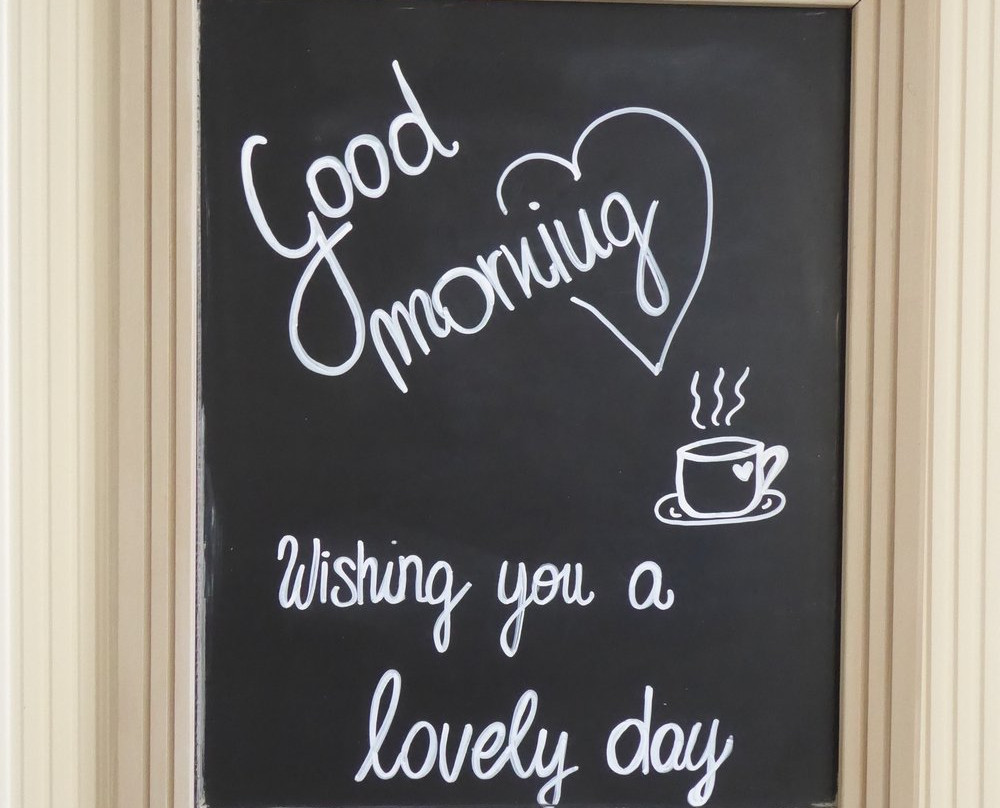 Good
morning
Wishing you a
lovely day